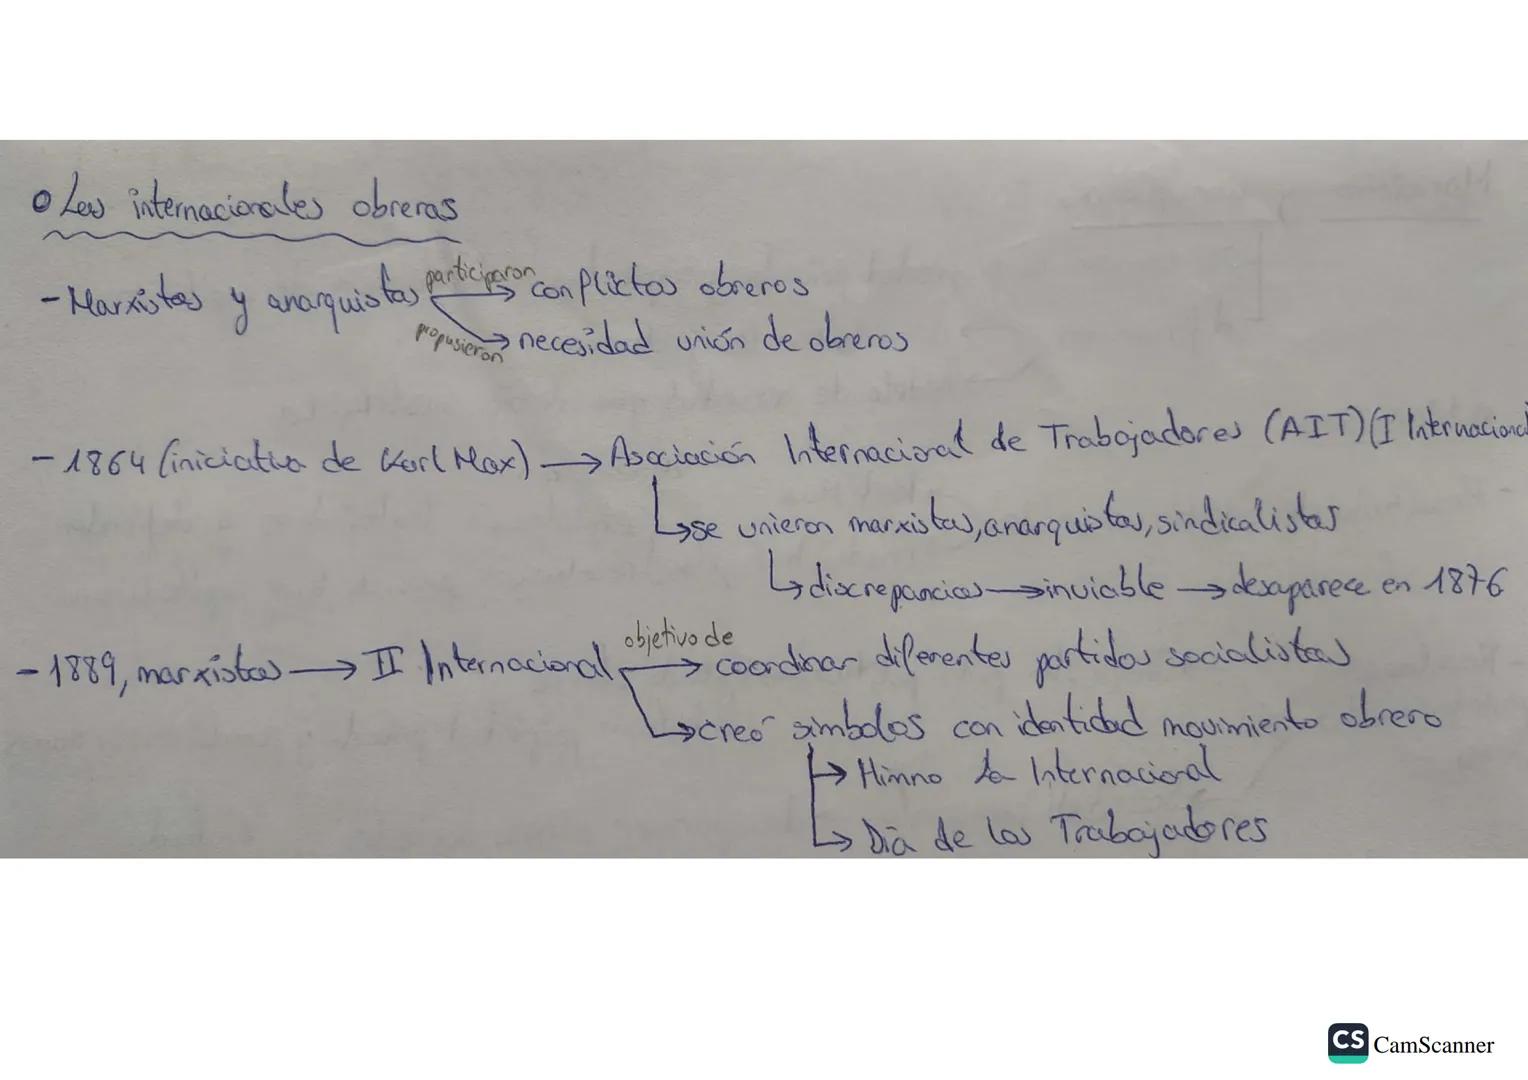 o Las internacionales obreras
- Marxistas y anarquistas participaron → conflictos obreros
propusieron → necesidad unión de obreros
- 1864 (iniciativa de Karl Max) → Asociación Internacional de Trabajadores (AIT) (I Internacional
↳ se unieron marxistas, anarquistas, sindicalistas
↳ discrepancias → inviable → desaparece en 1876
- 1889, marxistas → II Internacional objetivo de → coordinar diferentes partidos socialistas
↳ creó símbolos con identidad movimiento obrero
→ Himno la Internacional
↳ Día de los Trabajadores
CS CamScanner